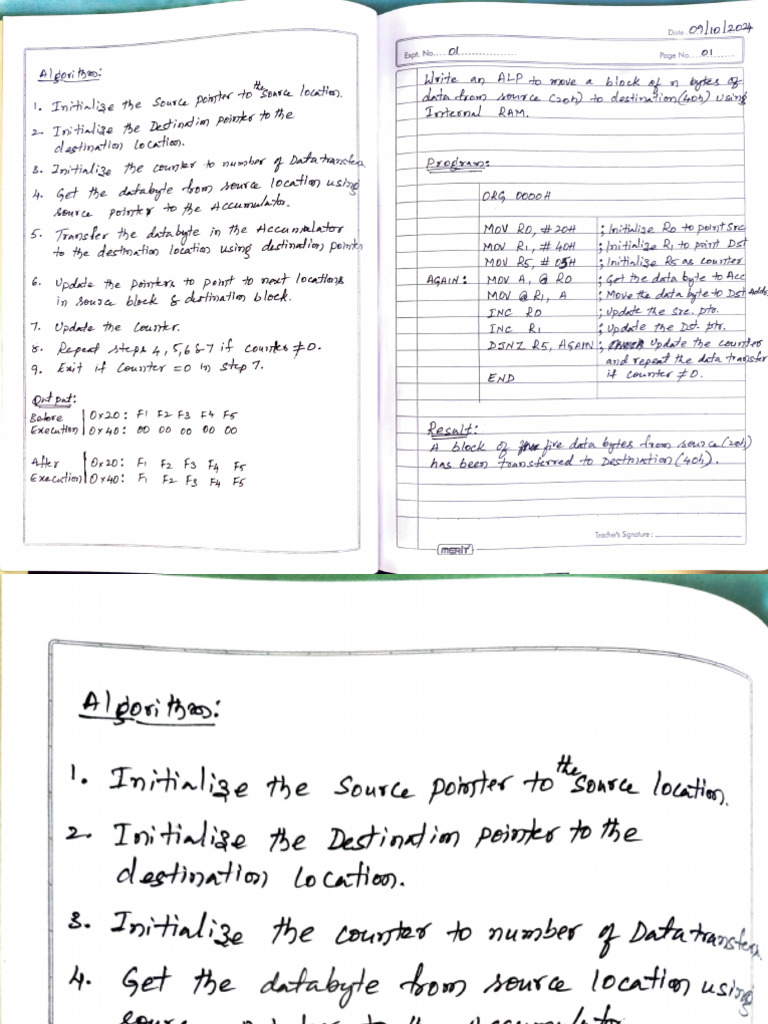 Algorithm:
1. Initialize the Source pointer to the source location.
2. Initialize the Destination pointer to the
destination location.
3. Initialize the counter to number of Data transfers
4. Get the databyte from source location using
source pointer to the Accumulator.
5. Transfer the databyte in the Accumulator
to the destination location using destination pointer
6. Update the pointers to point to next locations
in source block & destination block.
7. Update the counter.
8. Repeat steps 4, 5, 6 & 7 if counter ≠ 0.
9. Exit if counter = 0 in step 7.
Output:
Before 0x20: F1 F2 F3 F4 F5
Execution 0x40: 00 00 00 00 00
After 0x20: F1 F2 F3 F4 F5
Execution 0x40: F1 F2 F3 F4 F5
Date 09/10/2024
Expt. No. 01
Page No. 01
Write an ALP to move a block of n bytes of
data from source (20h) to destination (40h) using
Internal RAM.
Program:
ORG 0000H
MOV R0, #20H ; Initialize R0 to point Src
MOV R1, #40H ; Initialize R1 to point Dst
MOV R5, #05H ; Initialize R5 as counter
AGAIN: MOV A, @R0 ; Get the data byte to Acc
MOV @R1, A ; Move the data byte to Dst Adds
INC R0 ; update the Src. ptr.
INC R1 ; Update the Dst. ptr.
DJNZ R5, AGAIN ; Update the counter
and repeat the data transfer
if counter ≠ 0.
END
Result:
A block of five data bytes from source (20h)
has been transferred to Destination (40h).
Teacher's Signature :
MERIT
Algorithm:
1. Initialize the Source pointer to the source location.
2. Initialize the Destination pointer to the
destination location.
3. Initialize the counter to number of Data transfers.
4. Get the databyte from source location using
source pointer to the Accumulator